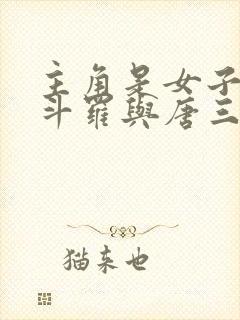 主角是女子
斗羅與唐三
猫来也